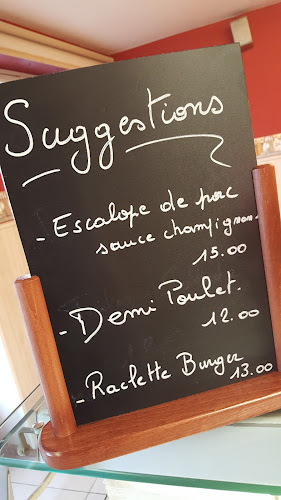 Suggestions
- Escalope de porc
sauce champignon.
15.00
- Demi Poulet.
12.00
- Raclette Burger
13.00